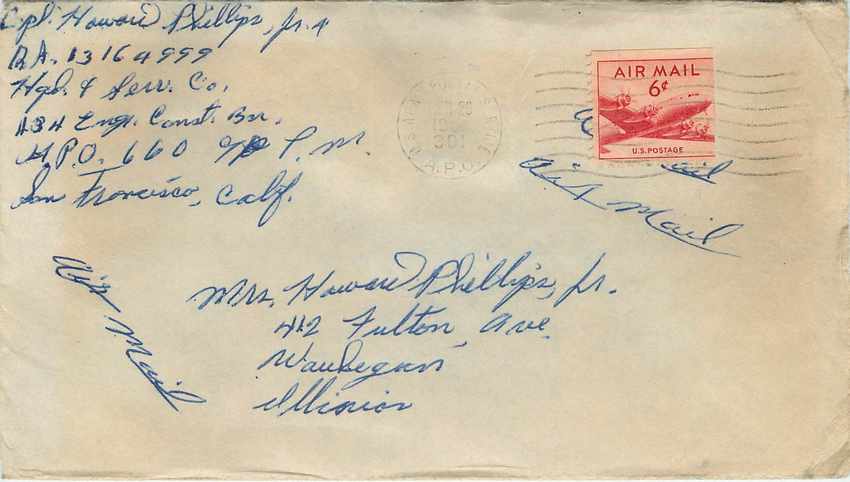 Cpl. Howard Phillips, Jr.
RA. 13164999
Hqd. & Serv. Co.
434 Engr. Const. Bn.
A.P.O. 660 % P. M.
San Francisco, Calif.
AIR MAIL
6¢
U.S. POSTAGE
301
A.P.O.
Mail
Air Mail
Air Mail
Mrs. Howard Phillips, Jr.
412 Fulton, Ave.
Waukegan
Illinois